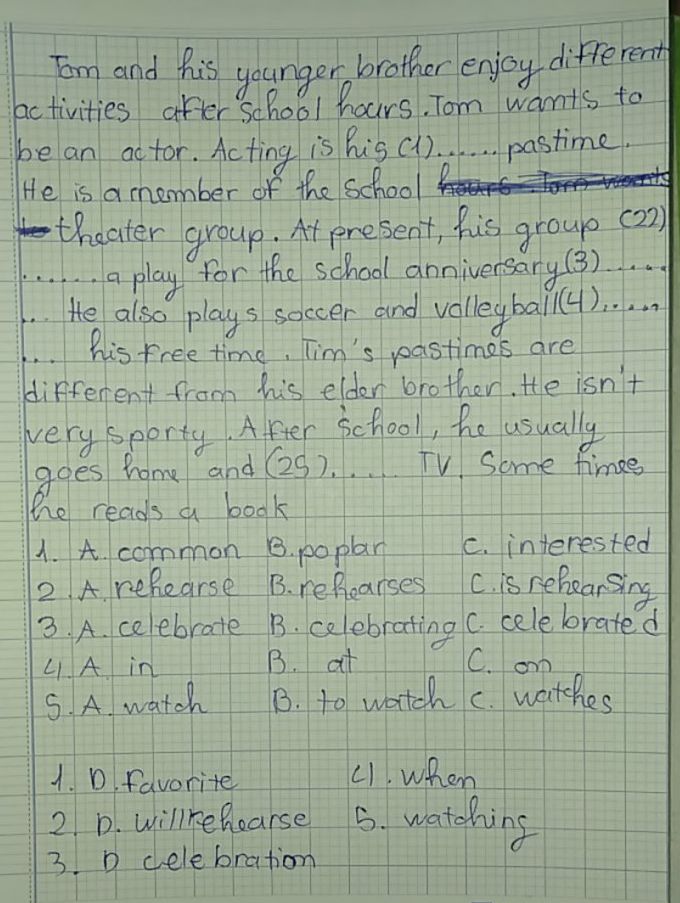 Tom and his younger brother enjoy different
activities after school hours. Tom wants to
be an actor. Acting is his (1)...... pastime.
He is a member of the school hours. Tom wants
to theater group. At present, his group (22)
...... a play for the school anniversary (3) .....
... He also plays soccer and valleyball (4).....
... his free time. Tim's pastimes are
different from his elder brother. He isn't
very sporty. After school, he usually
goes home and (25)..... TV. Some times
he reads a book
1. A. common B. poplar C. interested
2. A. rehearse B. rehearses C. is rehearsing
3. A. celebrate B. celebrating C. celebrated
4. A. in B. at C. on
5. A. watch B. to watch C. watches
1. D. favorite 4. when
2. D. will rehearse 5. watching
3. D celebration